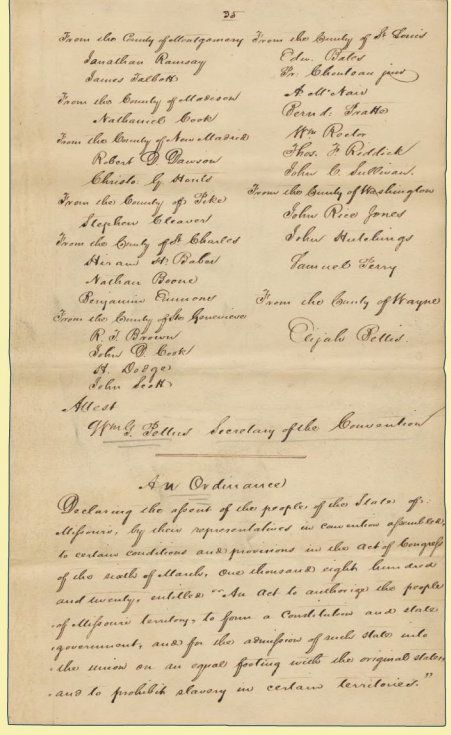 35
From the County of Montgomery
Jonathan Ramsay
James Talbott
From the County of Madison
Nathaniel Cook
From the County of New Madrid
Robert D. Dawson
Christo. G. Houts
From the County of Pike
Stephen Cleaver
From the County of St Charles
Hiram H. Baber
Nathan Boone
Benjamin Emmons
From the County of Ste Genevieve
R. T. Brown
John D. Cook
H. Dodge
John Scott
From the County of St Louis
Edw. Bates
Pr. Chouteau junr
A McNair
Bernd. Pratte
Wm Rector
Thos. F Riddick
John C. Sullivan.
From the County of Washington
John Rice Jones
John Hutchings
Samuel Perry
From the County of Wayne
Elijah Bettis.
Attest
Wm G. Pettus Secretary of the Convention
An Ordinance
Declaring the assent of the people of the State of
Missouri, by their representatives in convention assembled,
to certain conditions and provisions in the Act of Congress
of the sixth of March, One thousand eight hundred
and twenty, entitled "An Act to authorize the people
of Missouri territory, to form a Constitution and state
government, and for the admission of such state into
the union on an equal footing with the original states,
and to prohibit slavery in certain territories."